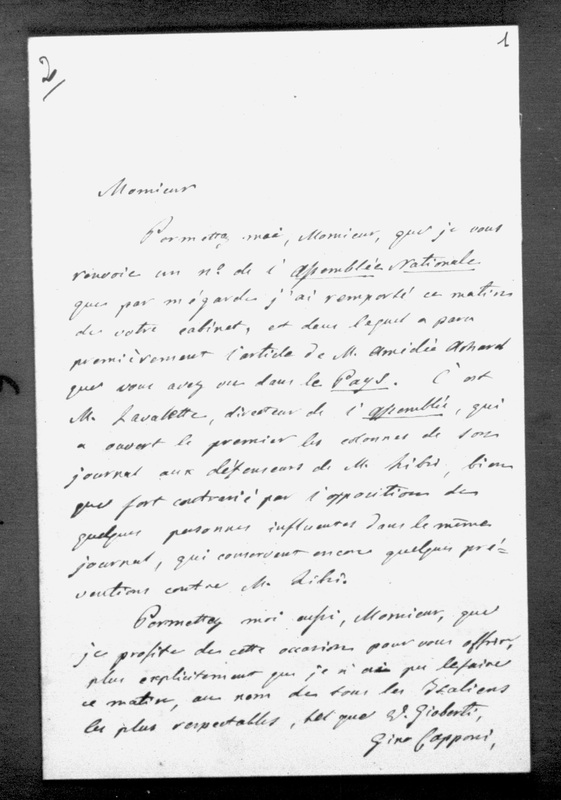 2/
1
Monsieur
Permettez moi, Monsieur, que je vous
renvoie un n.o de l'Assemblée Nationale
que par mégarde j'ai remporté ce matin
de votre cabinet, et dans lequel a paru
premièrement l'article de M. Amédée Achard
que vous avez vu dans le Pays. C'est
M. Lavalette, directeur de l'Assemblée, qui
a ouvert le premier les colonnes de son
journal aux défenseurs de M. Libri, bien
que fort contrarié par l'opposition de
quelques personnes influentes dans le même
journal, qui conservent encore quelques pré=
ventions contre M. Libri.
Permettez moi aussi, Monsieur, que
je profite de cette occasion pour vous offrir,
plus explicitement que je n'ai pu le faire
ce matin, au nom de tous les Italiens
les plus respectables, tels que V. Gioberti,
Gino Capponi,